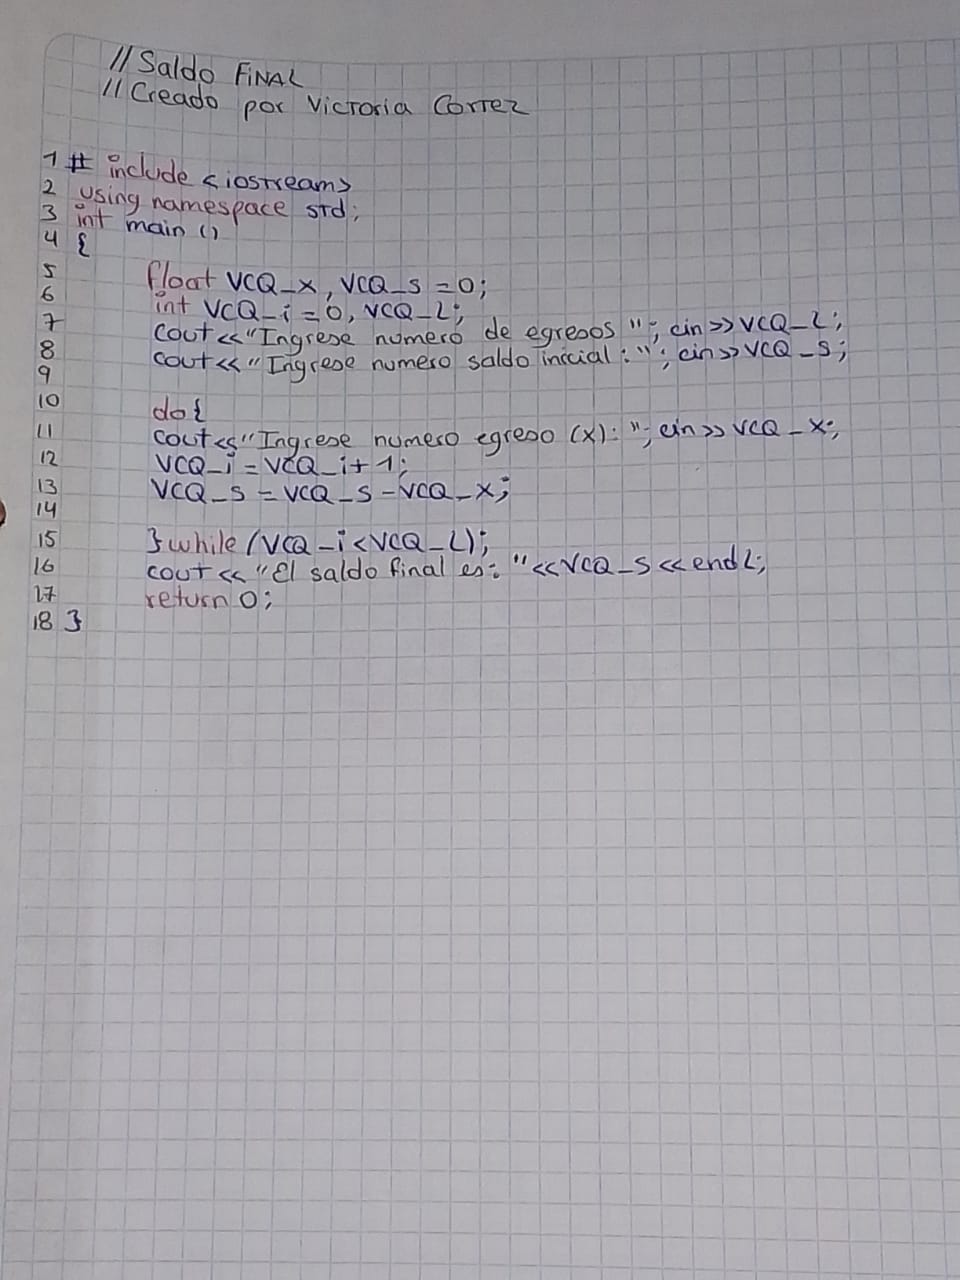 // Saldo FiNAL
// Creado por Victoria Correz
1 # include <iostream>
2 using namespace std;
3 int main ()
4 {
5 float VCQ_x, VCQ_s = 0;
6 int VCQ_i = 0, VCQ_L;
7 cout << "Ingrese numero de egresos "; cin >> VCQ_L;
8 cout << "Ingrese numero saldo inicial : "; cin >> VCQ_s;
9
10 do {
11 cout << "Ingrese numero egreso (x): "; cin >> VCQ_x;
12 VCQ_i = VCQ_i + 1;
13 VCQ_s = VCQ_s - VCQ_x;
14
15 } while (VCQ_i < VCQ_L);
16 cout << "El saldo final es: " << VCQ_s << endL;
17 return 0;
18 }